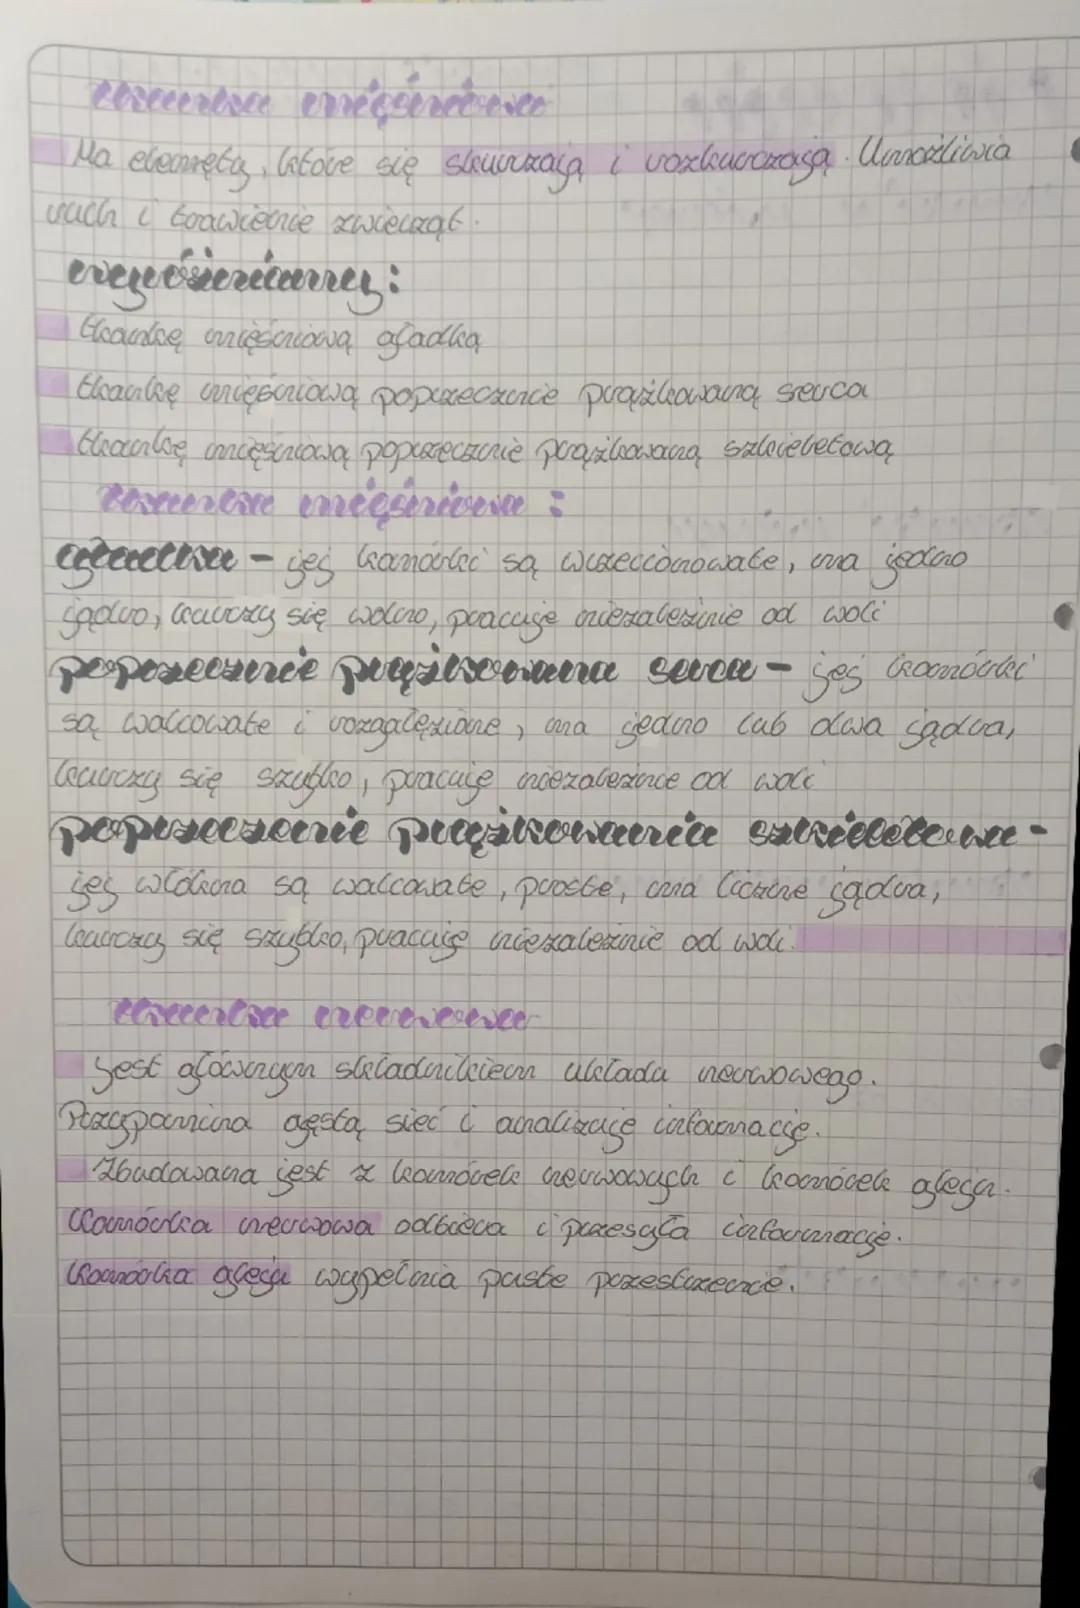 tkanka mięśniowa
Ma elemęty, które się skurczają i rozkurczają. Umożliwia
ruch i trawienie zwierząt.
wyróżniamy:
tkankę mięśniową gładką
tkankę mięśniową poprzecznie prążkowaną serca
tkankę mięśniową poprzecznie prążkowaną szkieletową
tkanka mięśniowa :
gładka - jej komórki są wrzecionowate, ma jedno
jądro, kurczy się wolno, pracuje niezależnie od woli
poprzecznie prążkowana serca - jej komórki
są walcowate i rozgałęzione, ma jedno lub dwa jądra,
kurczy się szybko, pracuje niezależnie od woli
poprzecznie prążkowania szkieletowa -
jej włókna są walcowate, proste, ma liczne jądra,
kurczy się szybko, pracuje niezależnie od woli.
tkanka nerwowa
jest głównym składnikiem układa nerwowego.
Przypomina gęstą sieć i analizuje informacje.
Zbudowana jest z komórek nerwowych i komórek gleju.
Komórka nerwowa odbiera i przesyła informacje.
Komórka gleju wypełnia puste przestrzenie.